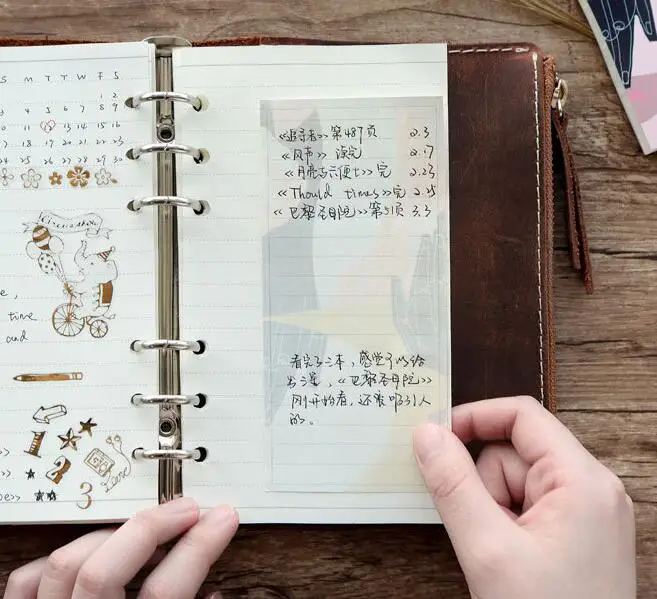 S M T W T F S
1 2
3 4 5 6 7 8 9
10 11 12 13 14 15 16
17 18 19 20 21 22 23
24 25 26 27 28 29 30
e,
time
and
1
2
3
《追寻者》第487页 2.3
《风声》读完 2.17
《月亮与六便士》完 2.23
《Thould times》完 2.25
《巴黎圣母院》第51页 3.3
看完了三本,感觉可以给
《巴黎圣母院》
刚开始看,还蛮吸引人
的。